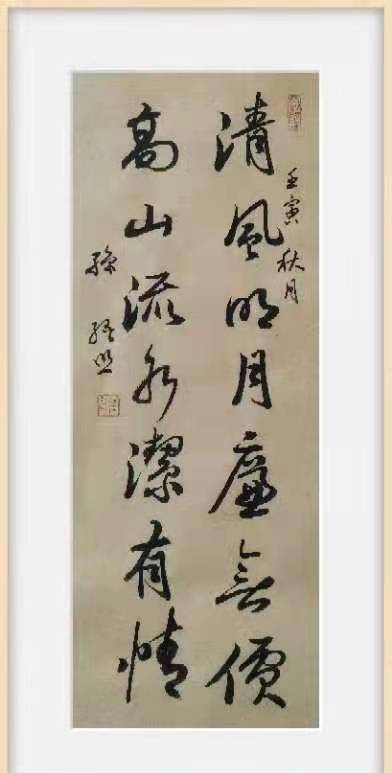 清風明月廉無價
壬寅秋月
高山流水潔有情
孫